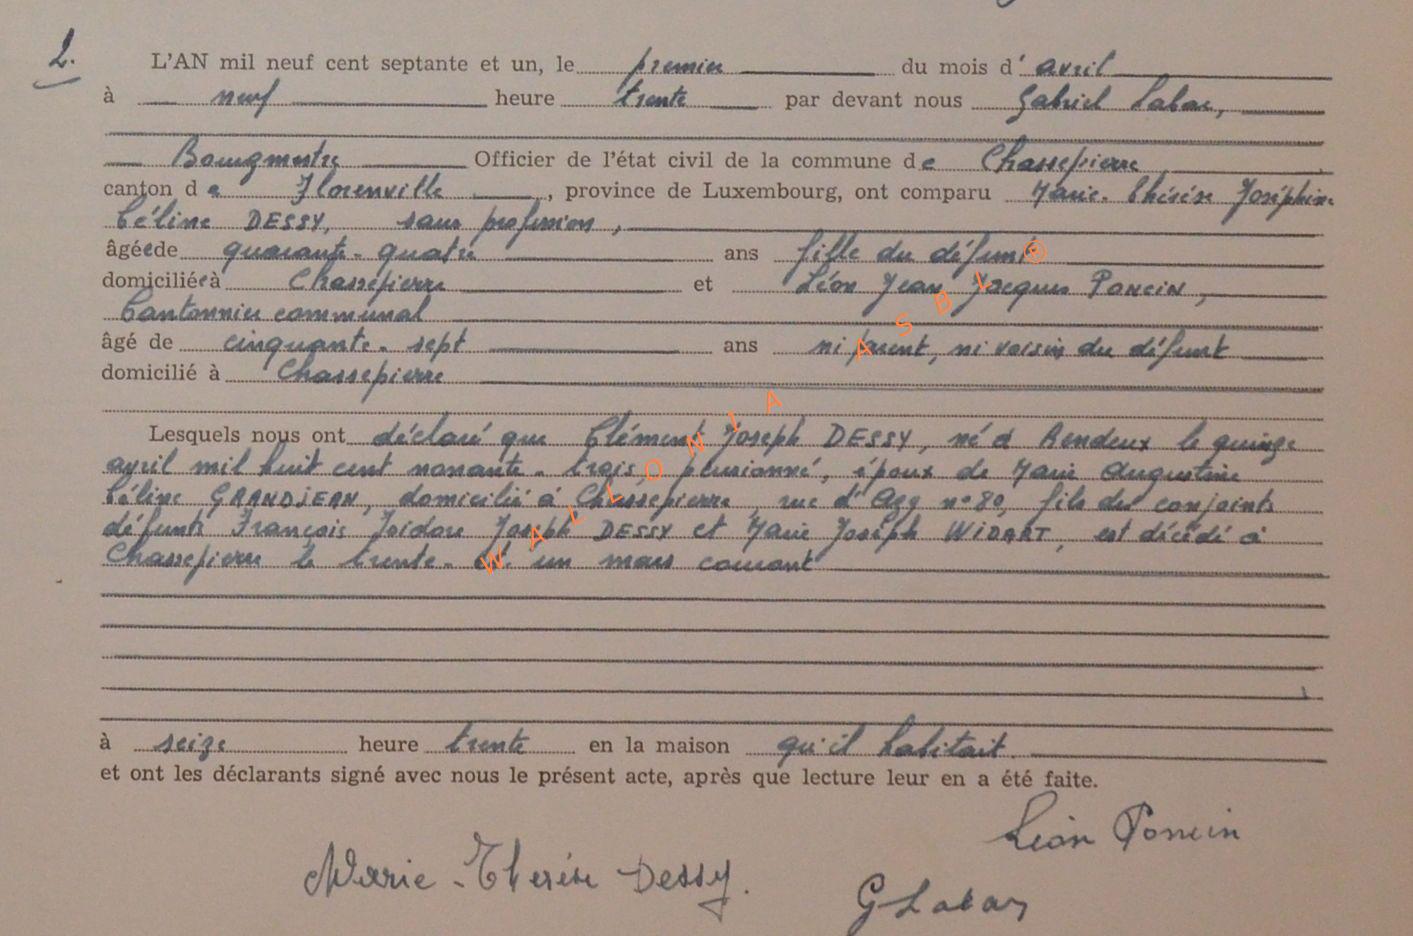 2.
L'AN mil neuf cent septante et un, le premier du mois d' avril
à neuf heure trente par devant nous Gabriel Labar,
Bourgmestre Officier de l'état civil de la commune de Chassepierre
canton de Florenville, province de Luxembourg, ont comparu Marie-Thérèse Joséphine
Céline DESSY, sans profession,
âgée de quarante-quatre ans fille du défunt
domiciliée à Chassepierre et Léon Jean Jacques PONCIN,
Cantonnier communal
âgé de cinquante-sept ans ni parent, ni voisin du défunt
domicilié à Chassepierre
Lesquels nous ont déclaré que Clément Joseph DESSY, né à Rendeux le quinze
avril mil huit cent nonante-trois, pensionné, époux de Marie Augustine
Céline GRANDJEAN, domicilié à Chassepierre, rue d'Azy n° 80, fils des conjoints
défunts François Isidore Joseph DESSY et Marie Joseph WIDART, est décédé à
Chassepierre le trente-et un mars courant
à seize heure trente en la maison qu'il habitait.
et ont les déclarants signé avec nous le présent acte, après que lecture leur en a été faite.
Léon Poncin
Marie-Thérèse Dessy.
G Labar
WALLONIA ASBL ®